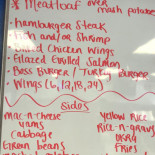 * Meatloaf over
mash potatoes
• hamburger steak
• Fish and/or Shrimp
Chicken Wings
• Glazed Grilled Salmon
• Boss Burger / Turkey Burger
• Wings (6,12,18,24)
Sides
mac-n-cheese
Yellow Rice
yams
Rice-n-gravy
Cabbage
OKRA
Green beans
fries